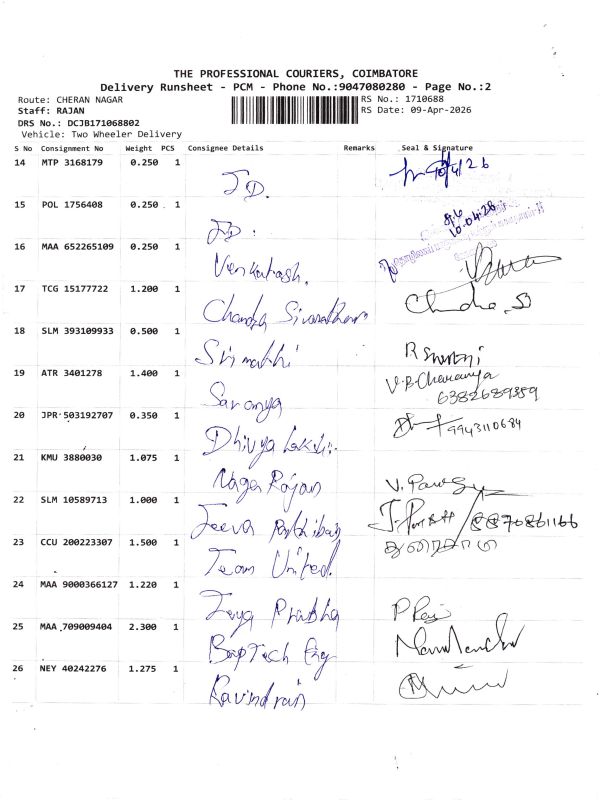 THE PROFESSIONAL COURIERS, COIMBATORE
Delivery Runsheet - PCM - Phone No.:9047080280 - Page No.:2
Route: CHERAN NAGAR
RS No.: 1710688
Staff: RAJAN
RS Date: 09-Apr-2026
DRS No.: DCJB171068802
Vehicle: Two Wheeler Delivery
S No Consignment No Weight PCS Consignee Details Remarks Seal & Signature
14 MTP 3168179 0.250 1 J D. 10/4/26
15 POL 1756408 0.250 1 JD. 10.04.26
16 MAA 652265109 0.250 1 Venkatesh.
17 TCG 15177722 1.200 1 Chandra
18 SLM 393109933 0.500 1 Srimathi
19 ATR 3401278 1.400 1 Saranya 6382689359
20 JPR 503192707 0.350 1 Dhivya 9943110684
21 KMU 3880030 1.075 1 Naga Rajan
22 SLM 10589713 1.000 1 Jeeva 8870861166
23 CCU 200223307 1.500 1 Team United.
24 MAA 9000366127 1.220 1 Jaya Prabha
25 MAA 709009404 2.300 1 Tech Eng
26 NEY 40242276 1.275 1 Ravindran